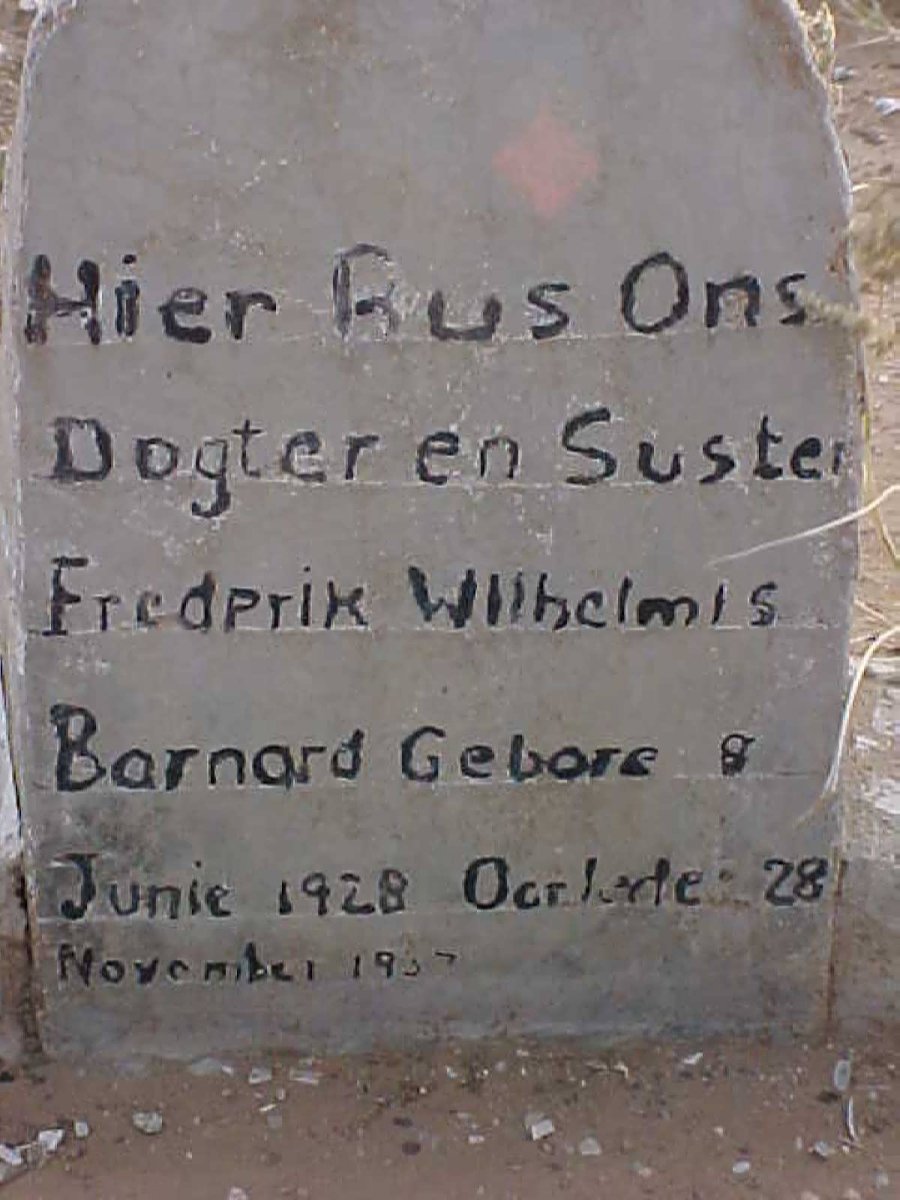 Hier Rus Ons
Dogter en Suster
Frederik Wilhelmis
Barnard Gebore 8
Junie 1928 Oorlede 28
November